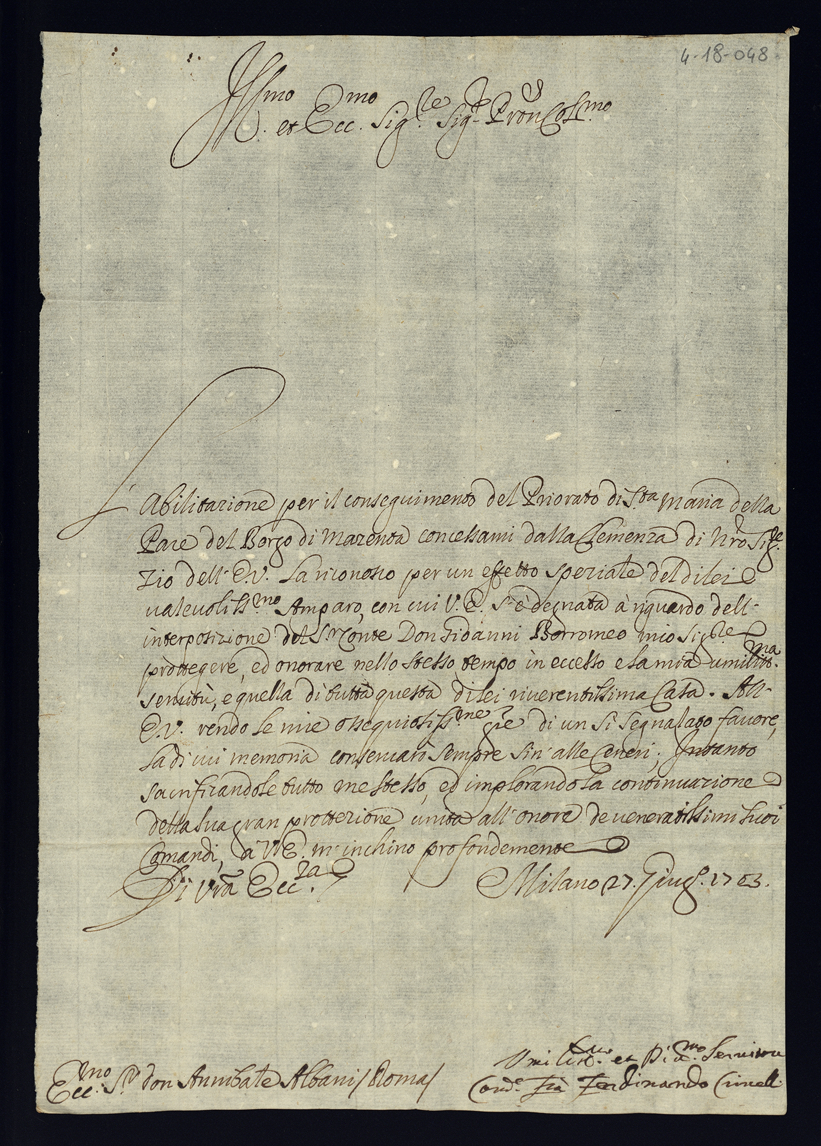 4-18-048
Ill.mo et Ecc.mo Sig.re Sig.r Prõn Col.mo
L'Abilitazione per il conseguimento del Priorato di S.ta Maria della
Pace del Borgo di Marzenta concessami dalla Clemenza di Nrõ Sig.re
Zio dell'E.V. la riconosco per un effetto speziale del di lei
valevoliss.mo Amparo, con cui V.E. s'è degnata à riguardo dell'
interposizione del S.r Conte Don Giovanni Borromeo mio Sig.re
proteggere, ed onorare nello stesso tempo in eccesso e la mia umiliss.ma
servitù, e quella di tutta questa di lei riverentissima Casa. All'
E.V. rendo le mie ossequiosiss.me gzie di un sì segnalato favore,
la di cui memoria conservarò sempre sin' alle Ceneri. Intanto
sacrificandole tutto me stesso, ed implorando la continuazione
della sua gran protezione unita all'onore de veneratissimi suoi
Comandi, a V.E. m'inchino profondemente
Di Vrã Ecc.za
Milano 27. Giug. 1703.
Umiliss.mo et D.mo Servitore
Ecc.mo S.r don Annibale Albani / Roma /
Ferdinando